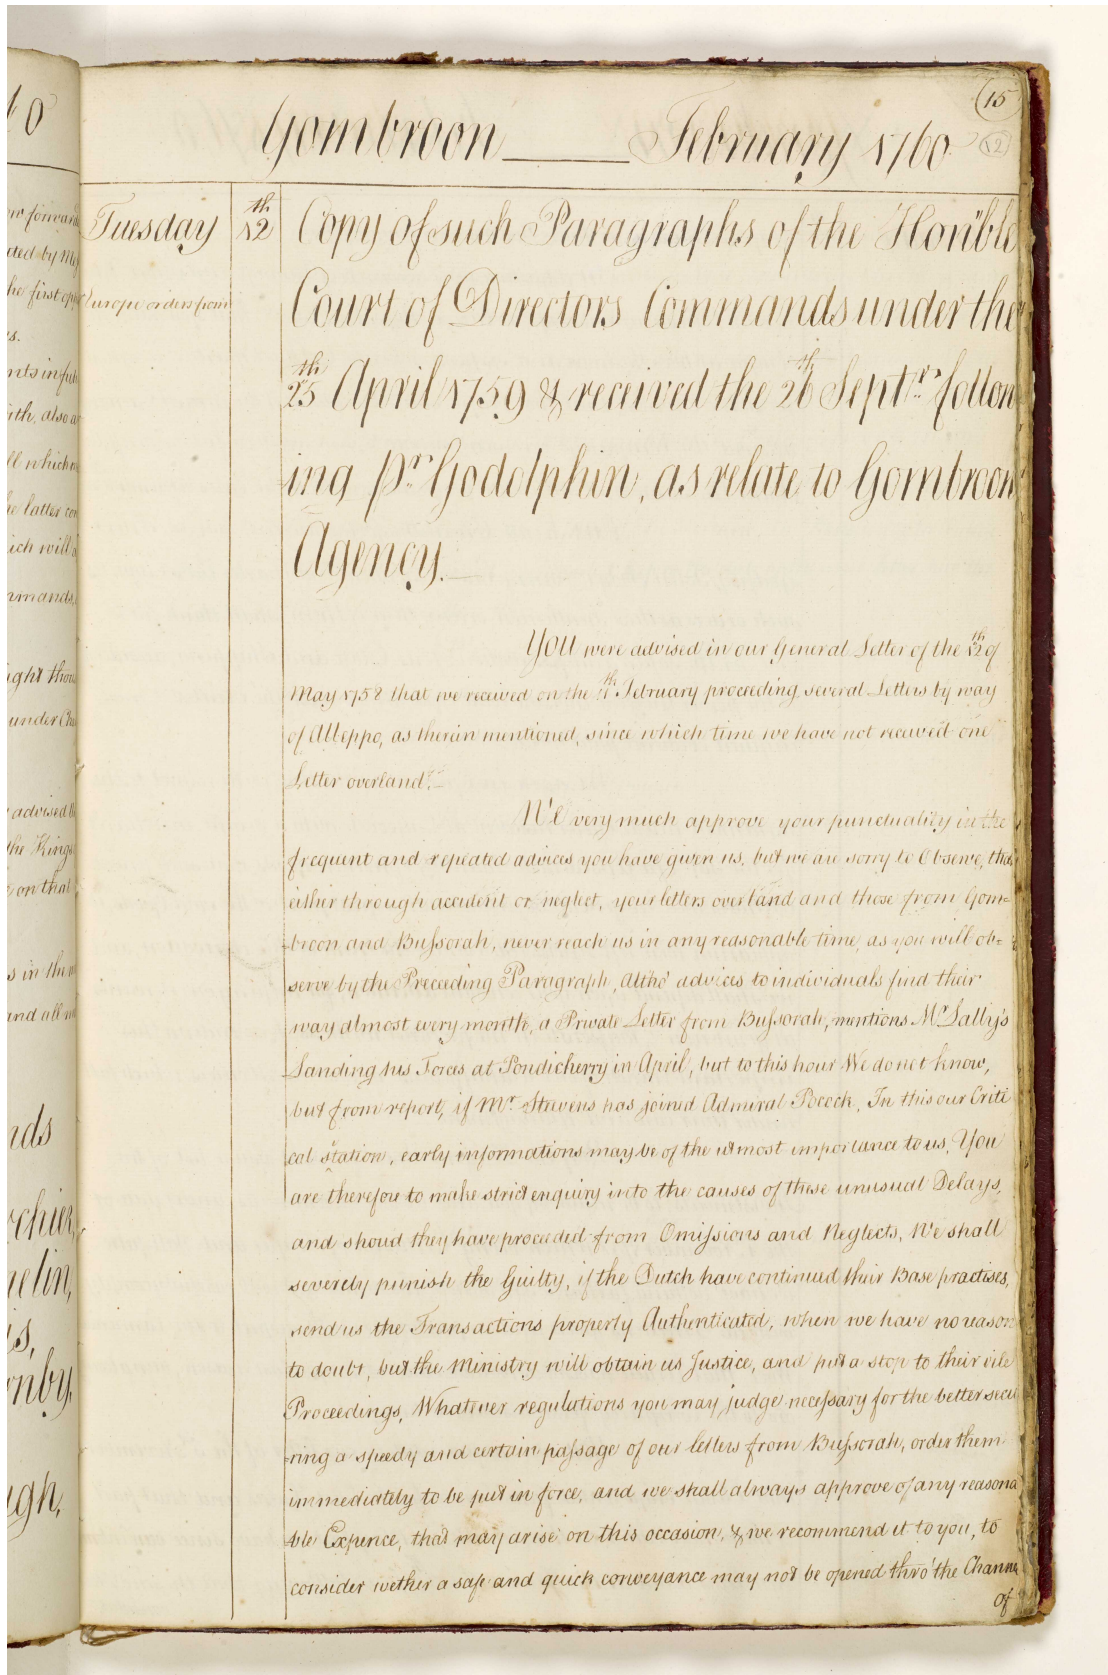 15
12
Gombroon February 1760
Tuesday
12th
Europe orders from
Copy of such Paragraphs of the Hon'ble
Court of Directors Commands under the
25th April 1759 & received the 26th Septr. follow
ing pr. Godolphin, as relate to Gombroon
Agency.
You were advised in our General Letter of the 12th of
May 1758 that we received on the February proceeding several Letters by way
of Alleppo, as therein mentioned, since which time we have not received one
Letter overland.
We very much approve your punctuality in the
frequent and repeated advices you have given us, but we are sorry to Observe, that
either through accident or neglect, your letters overland and those from Gom=
=broon and Bussorah, never reach us in any reasonable time, as you will ob=
serve by the Preceeding Paragraph, altho' advices to individuals find their
way almost every month, a Private Letter from Bussorah, mentions Mr Lally's
Landing his Forces at Pondicherry in April, but to this hour We do not know,
but from report, if Mr. Stevens has joined Admiral Pocock, In this our Criti
cal station, early informations may be of the utmost importance to us, You
are therefore to make strict enquiry into the causes of these unusual Delays,
and shoud they have proceeded from Omissions and Neglects, We shall
severely punish the Guilty, if the Dutch have continued their Base practises,
send us the Transactions properly Authenticated, when we have no reason
to doubt, but the Ministry will obtain us Justice, and put a stop to their vile
Proceedings, Whatever regulations you may judge necessary for the better secu
=ring a speedy and certain passage of our letters from Bussorah, order them
immediately to be put in force, and we shall always approve of any reasona
ble Expence, that may arise on this occasion, & we recommend it to you, to
consider wether a safe and quick conveyance may not be opened thro' the Channel
of